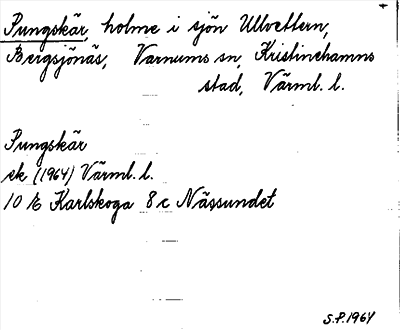 Pungskär, holme i sjön Ullvettern,
Bergsjönäs, Varnums sn, Kristinehamns
stad, Värml. l.
Pungskär
ek (1964) Värml. l.
10 E Karlskoga 8 c Nässundet
S.P. 1964